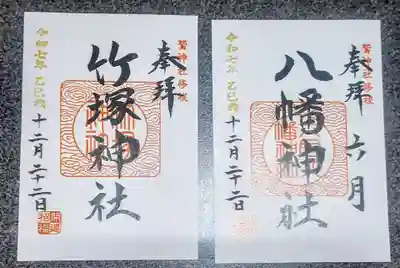 鷲神社
奉拝
竹塚神社
令和七年 乙巳歳
十二月二十二日
開運招福
鷲神社
奉拝 六月
八幡神社
令和七年 乙巳歳
十二月二十二日